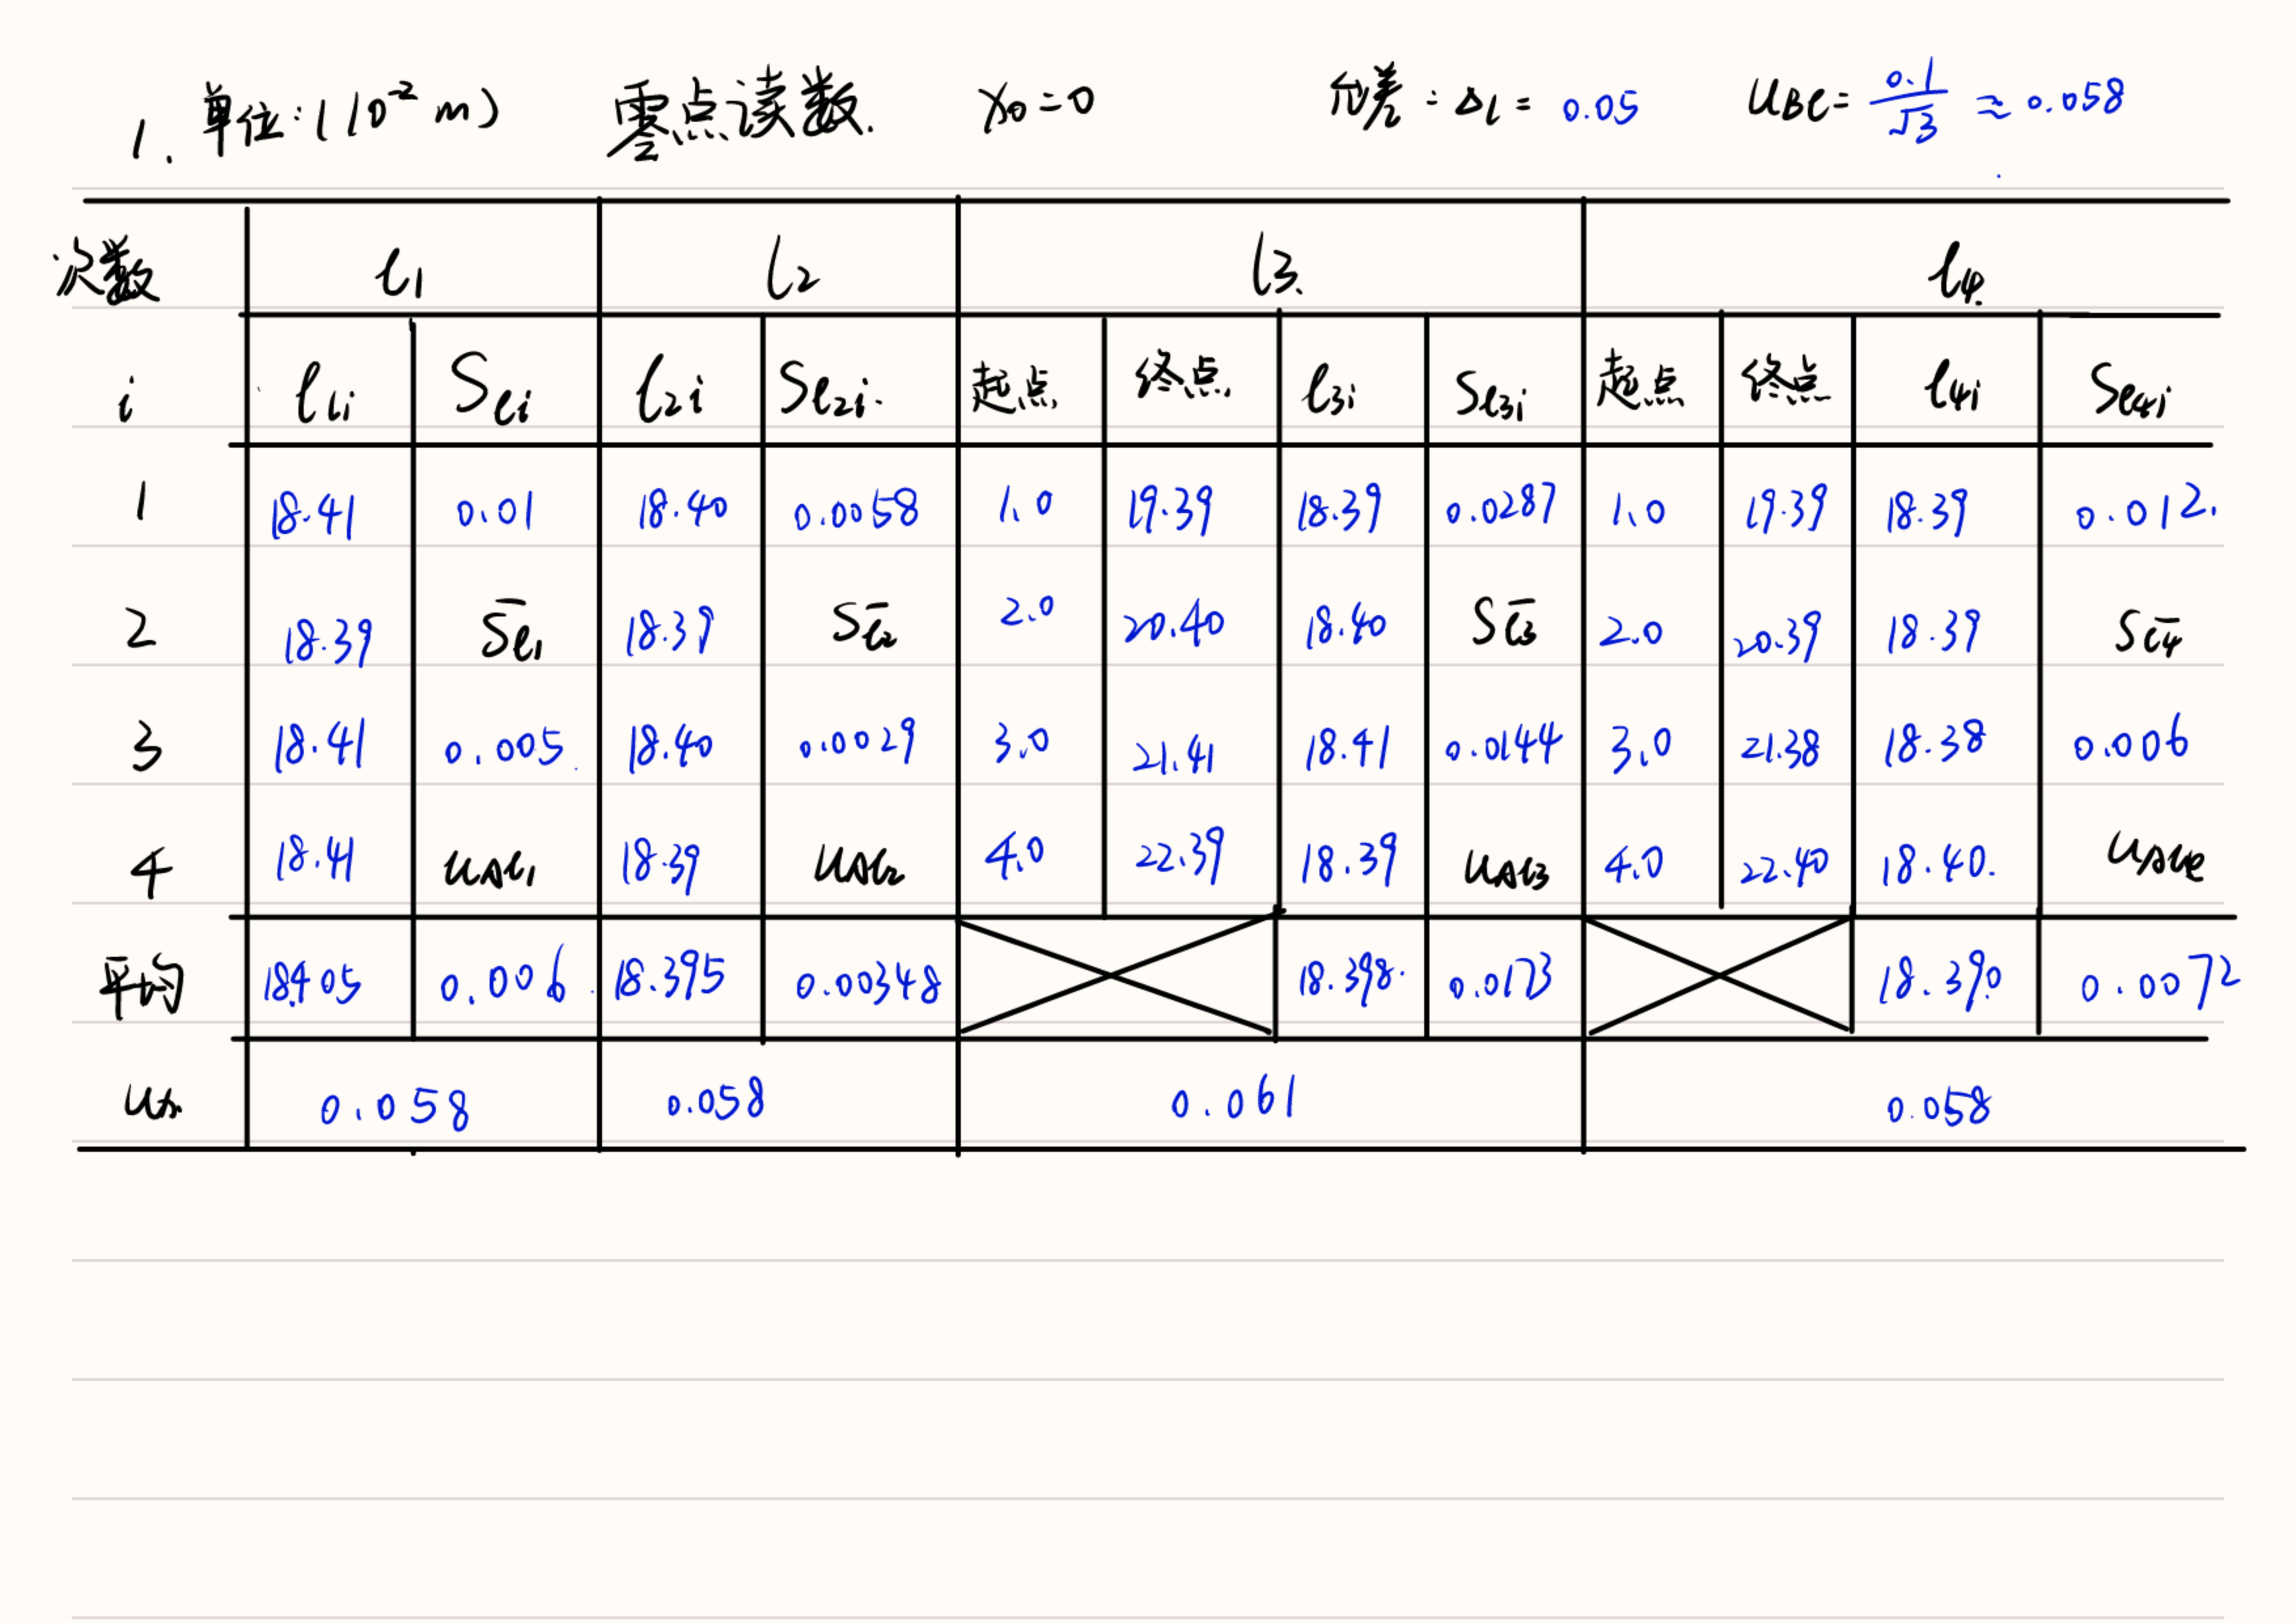 1. 单位:(10⁻² m) 零点读数. x₀=0 允差:Δl=0.05 UBl=0.1/√3≈0.058
次数 l1 l2 l3. l4.
i l1i Sli l2i Sl2i. 起点 终点 l3i Sl3i 起点 终点 l4i Sl4i
1 18.41 0.01 18.40 0.0058 1.0 19.39 18.39 0.0287 1.0 19.39 18.39 0.012.
2 18.39 S̄l1 18.39 Sl̄2 2.0 20.40 18.40 Sl̄3 2.0 20.39 18.39 Sl̄4
3 18.41 0.005 18.40 0.0029 3.0 21.41 18.41 0.0144 3.0 21.38 18.38 0.006
4 18.41 uAl1 18.39 uAl2 4.0 22.39 18.39 uAl3 4.0 22.40 18.40.
平均 18.405 0.006 18.395 0.00348 18.398. 0.0173 18.390 0.0072
0.058 0.058 0.061 0.058